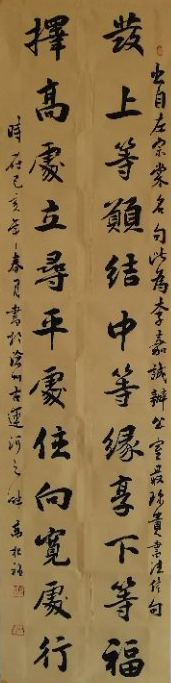 出自左宗棠名句此为李嘉诚办公室最珍贵書法佳句
發上等願結中等緣享下等福
擇高處立尋平處住向寬處行
時在己亥年春月書於滄州古運河之畔